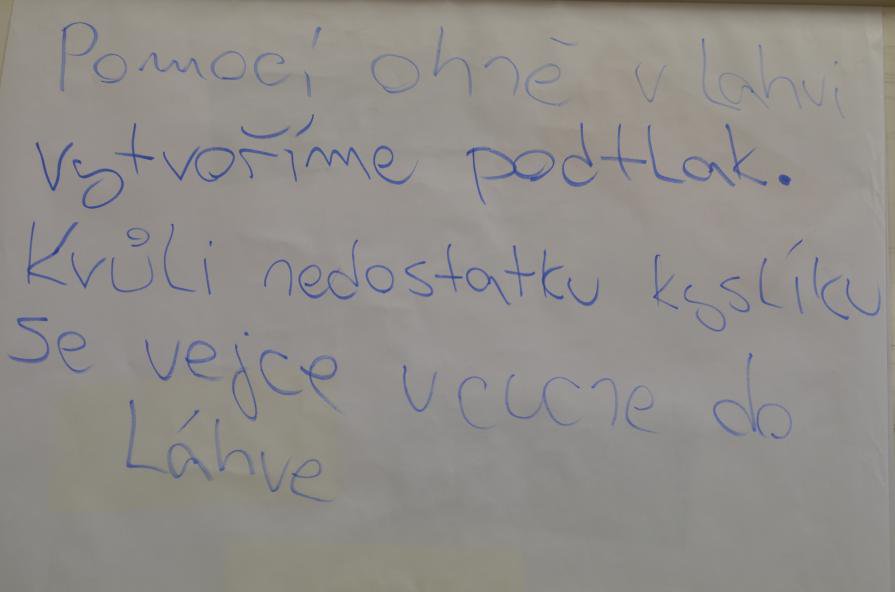 Pomocí ohně v lahvi
vytvoříme podtlak.
Kvůli nedostatku kyslíku
se vejce vcucne do
Láhve